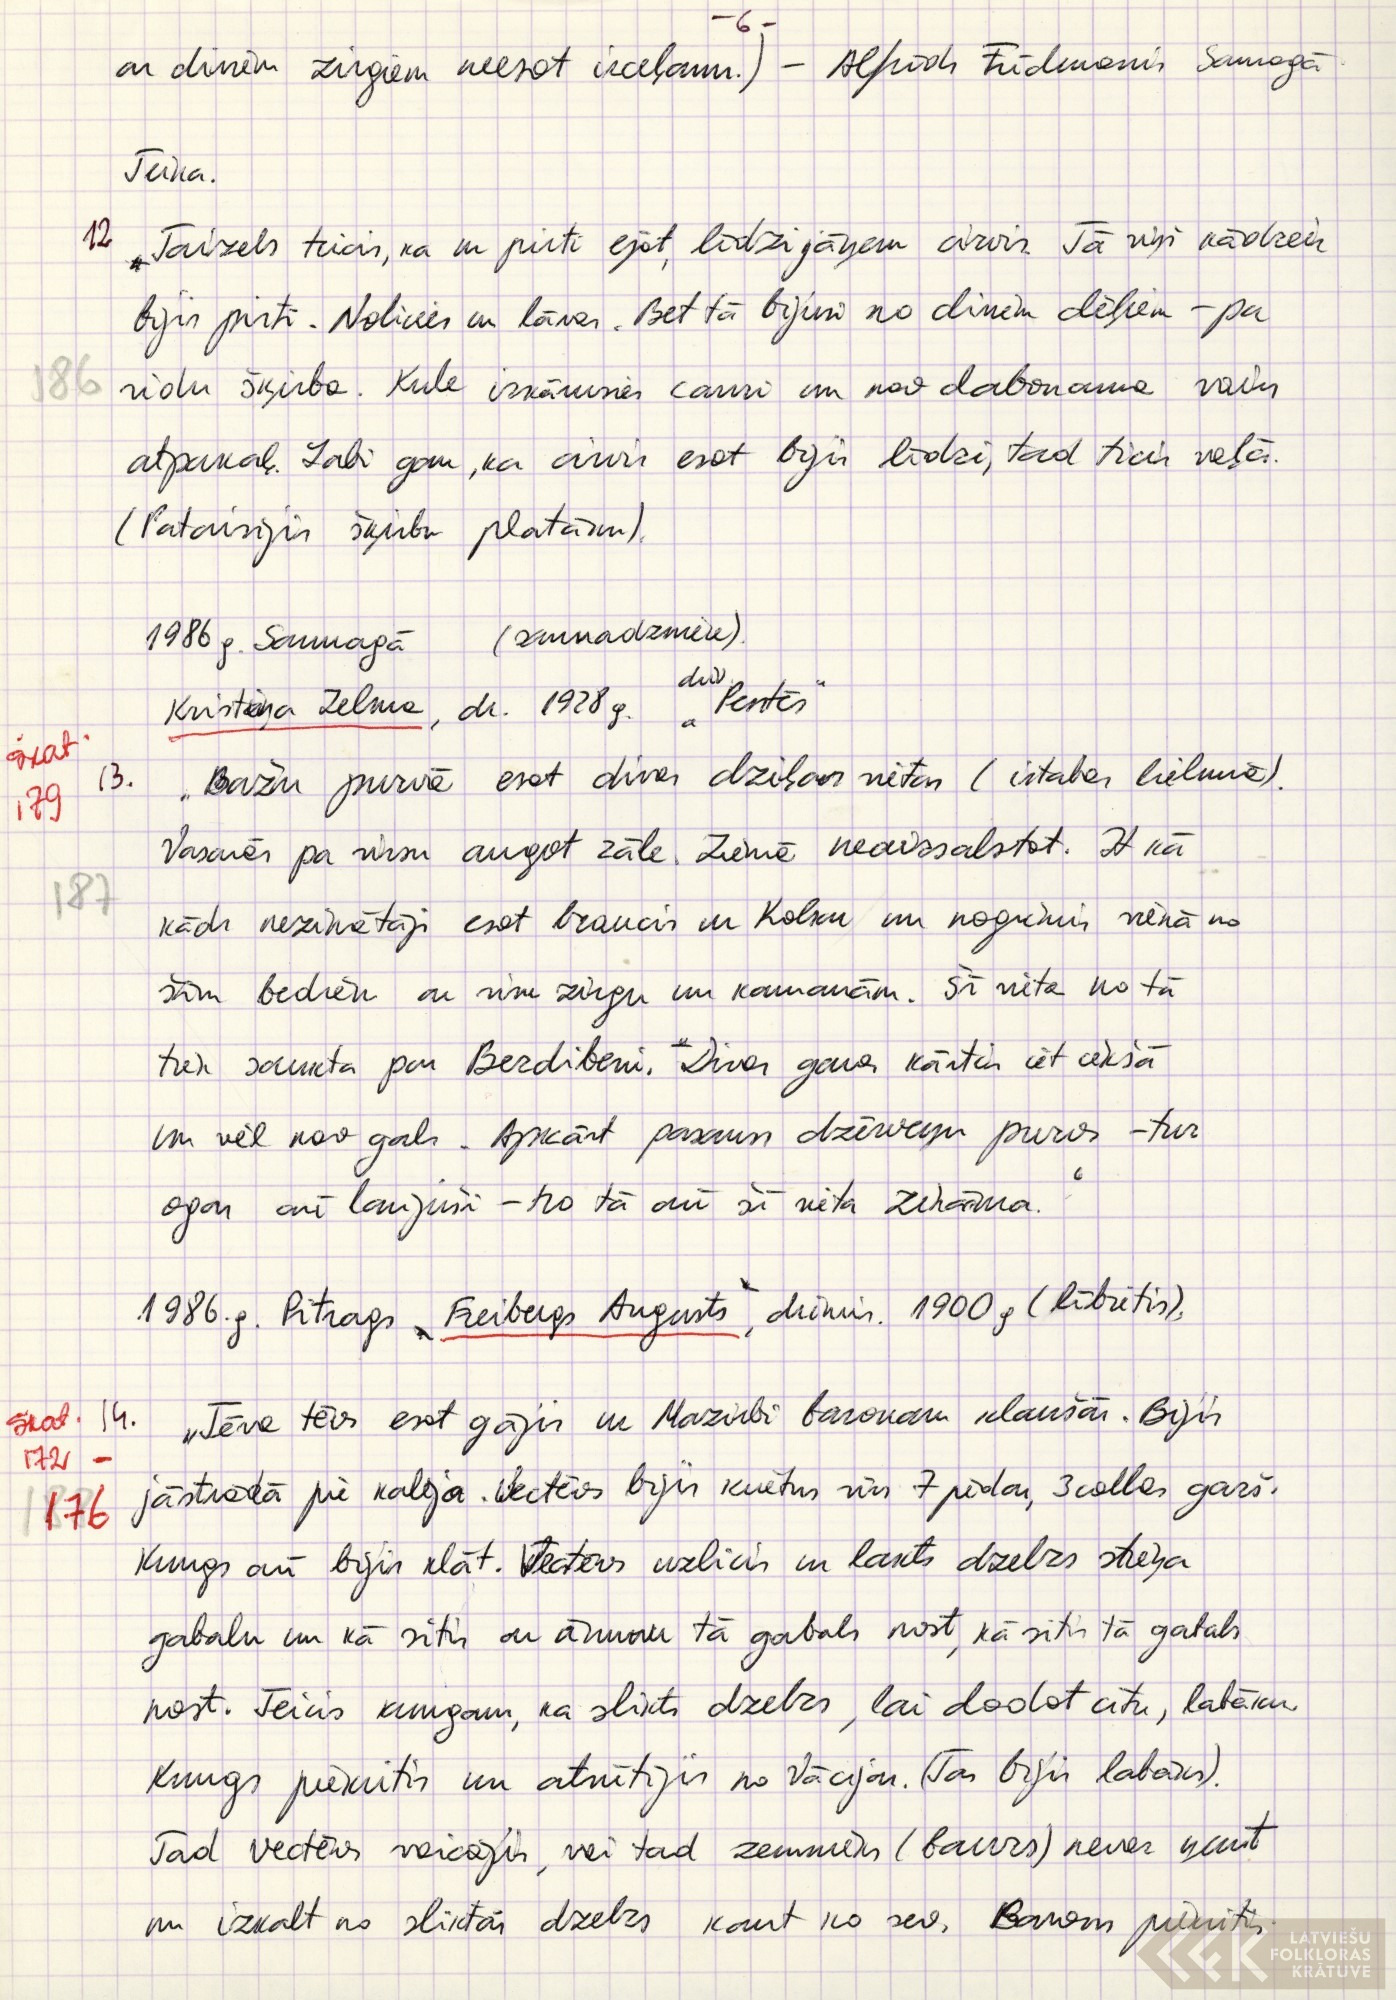 -6-
ar diviem zirgiem neesot izceļami.) - Alfrēds Frīdmanis Saunagā
Teika.
12 „Taizels teicis, ka uz pirti ejot, līdzi jāņem cirvis. Tā viņš kādreiz
bijis pirtī. Nolicies uz lāvas. Bet tā bijusi no diviem dēļiem - pa
186 vidu šķirba. Kule izkārusies cauri un nav dabonama vairs
atpakaļ. Labi gan, ka cirvis esot bijis līdzi, tad ticis vaļā.
(Pataisījis šķirbu platāku).
1986 g. Saunagā (saunadznieki).
Kristiņa Zelma, dz. 1928 g. dzīv. „Pestēs"
skat. 179 13. „Bažu purvā esot divas dziļas vietas (istabas lielumā).
Vasarās pa virsu augot zāle. Ziemā neaizsalstot. It kā
187 kāds nezinātājs esot braucis uz Kolku un nogrimis vienā no
šīm bedrēm ar visu zirgu un kamanām. Šī vieta no tā
tiek saukta par Bezdibeni. "Divas garas kārtis iet iekšā
un vēl nav gals. Apkārt pasaus dzērveņu purvs - tur
ogas arī lasījuši - no tā arī šī vieta zināma."
1986.g. Pitrags „Freibergs Augusts", dzimis. 1900 g (lībietis).
skat. 172 - 176 14. „Tēva tēvs esot gājis uz Mazirbi baronam klaušās. Bijis
jāstrādā pie kalēja. Vectēvs bijis kuatus vīrs 7 pēdas, 3 collas garš.
Kungs arī bijis klāt. Vectēvs uzlicis uz laktas dzelzs stieņa
gabalu un kā sitis ar āmuru tā gabals nost, kā sitis tā gabals
nost. Teicis kungam, ka slikts dzelzs, lai dodot citu, labāku.
Kungs piekritis un atsūtījis no Vācijas. (Tas bijis labāks).
Tad vectēvs vaicājis, vai tad zemnieks (baurs) nevar ņemt
un izkalt no sliktās dzelzs kaut ko sev. Barons piekritis.
LATVIEŠU
FOLKLORAS
KRĀTUVE